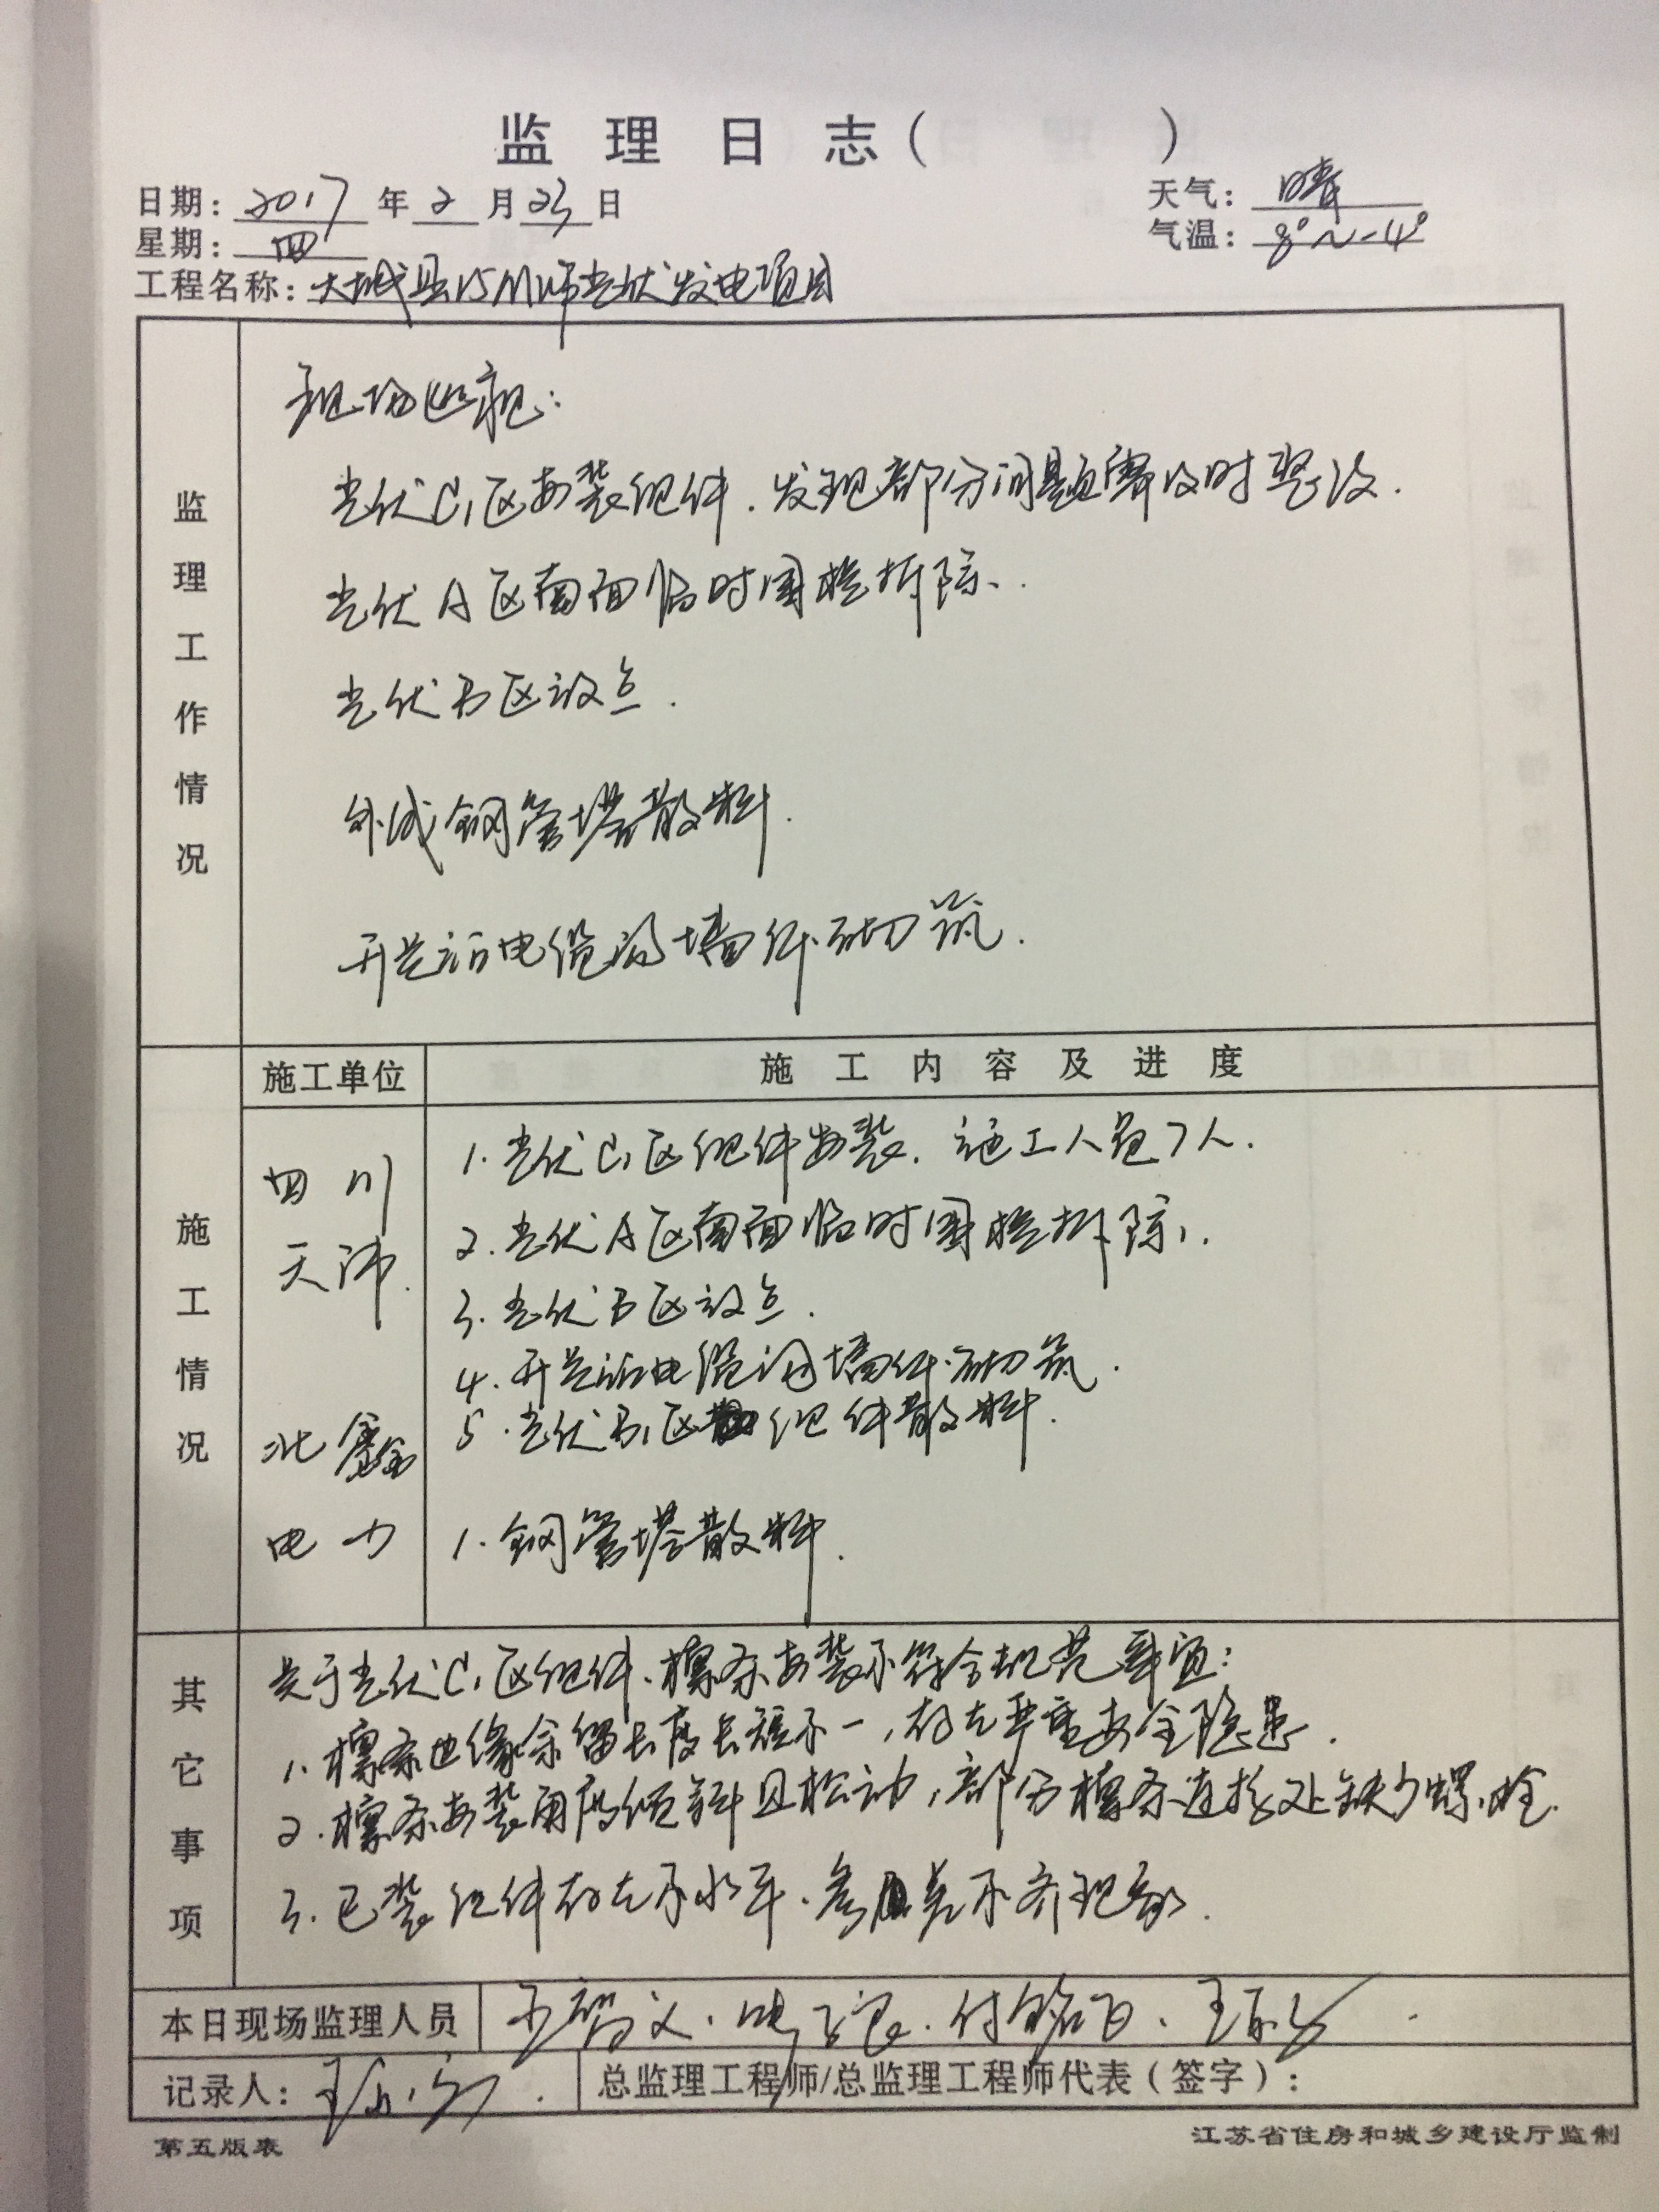 监 理 日 志（ ）
日期：2017 年 2 月 23 日 天气：晴
星期：四 气温：8°~-4°
工程名称：大城县15MW光伏发电项目
监理工作情况
现场巡视：
光伏C1区安装组件．发现部分问题需及时整改．
光伏A区南面临时围栏拆除．
光伏B区放点．
外线钢管塔散料．
开关站电缆沟墙体砌筑．
施工单位 施 工 内 容 及 进 度
施工情况
四川
天沛．
1. 光伏C1区组件安装．施工人员7人．
2. 光伏A区南面临时围栏拆除．
3. 光伏B区放点．
4. 开关站电缆沟墙体砌筑．
5. 光伏B1区组件散料．
北鑫
电力
1. 钢管塔散料．
其它事项
关于光伏C1区组件、檩条安装不符合规范事宜：
1. 檩条边缘余留长度长短不一，存在严重安全隐患．
2. 檩条安装角度倾斜且松动，部分檩条连接处缺少螺栓．
3. 已装组件存在不水平、参差不齐现象．
本日现场监理人员
记录人： 总监理工程师/总监理工程师代表（签字）：
第五版表 江苏省住房和城乡建设厅监制